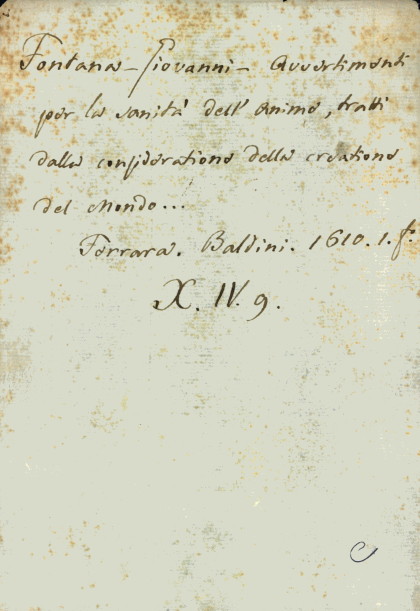 Fontana - Giovanni - Avvertimenti
per la sanità dell' Animo, tratti
dalla consideratione della creatione
del Mondo...
Ferrara. Baldini. 1610. 1. f.
X. IV. 9.